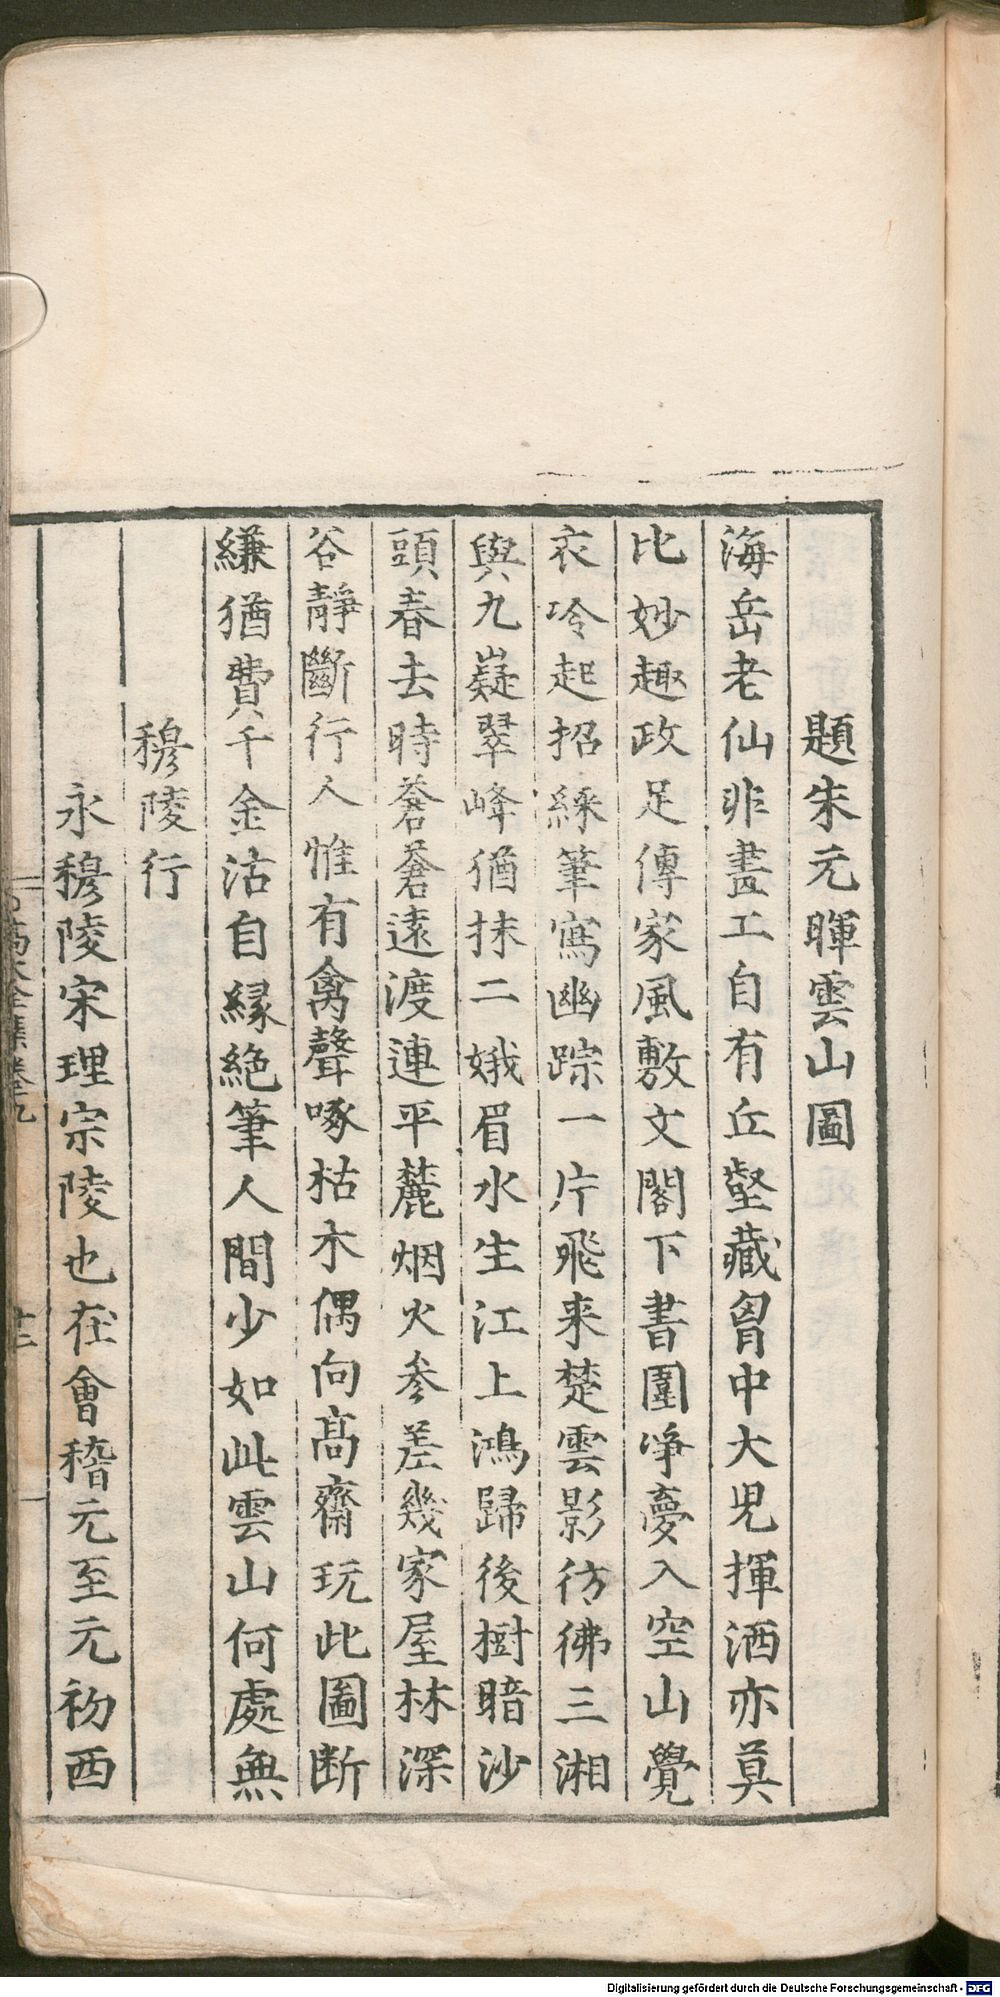 題朱元暉雲山圖
海岳老仙非畵工自有丘壑藏胷中大児揮洒亦莫
比妙趣政足傳家風敷文閣下書圍爭夢入空山覺
衣冷起招練筆寫幽踪一片飛来楚雲影彷彿三湘
與九嶷翠峰猶抹二娥眉水生江上鴻歸後樹暗沙
頭春去時蒼蒼遠渡連平麓烟火參差幾家屋林深
谷靜斷行人惟有禽聲啄枯木偶向髙齋玩此圖断
縑猶費千金沽自縁絶筆人間少如此雲山何處無
穆陵行
永穆陵宋理宗陵也在會稽元至元初西
髙太全集卷九
十二
Digitalisierung gefördert durch die Deutsche Forschungsgemeinschaft - DFG